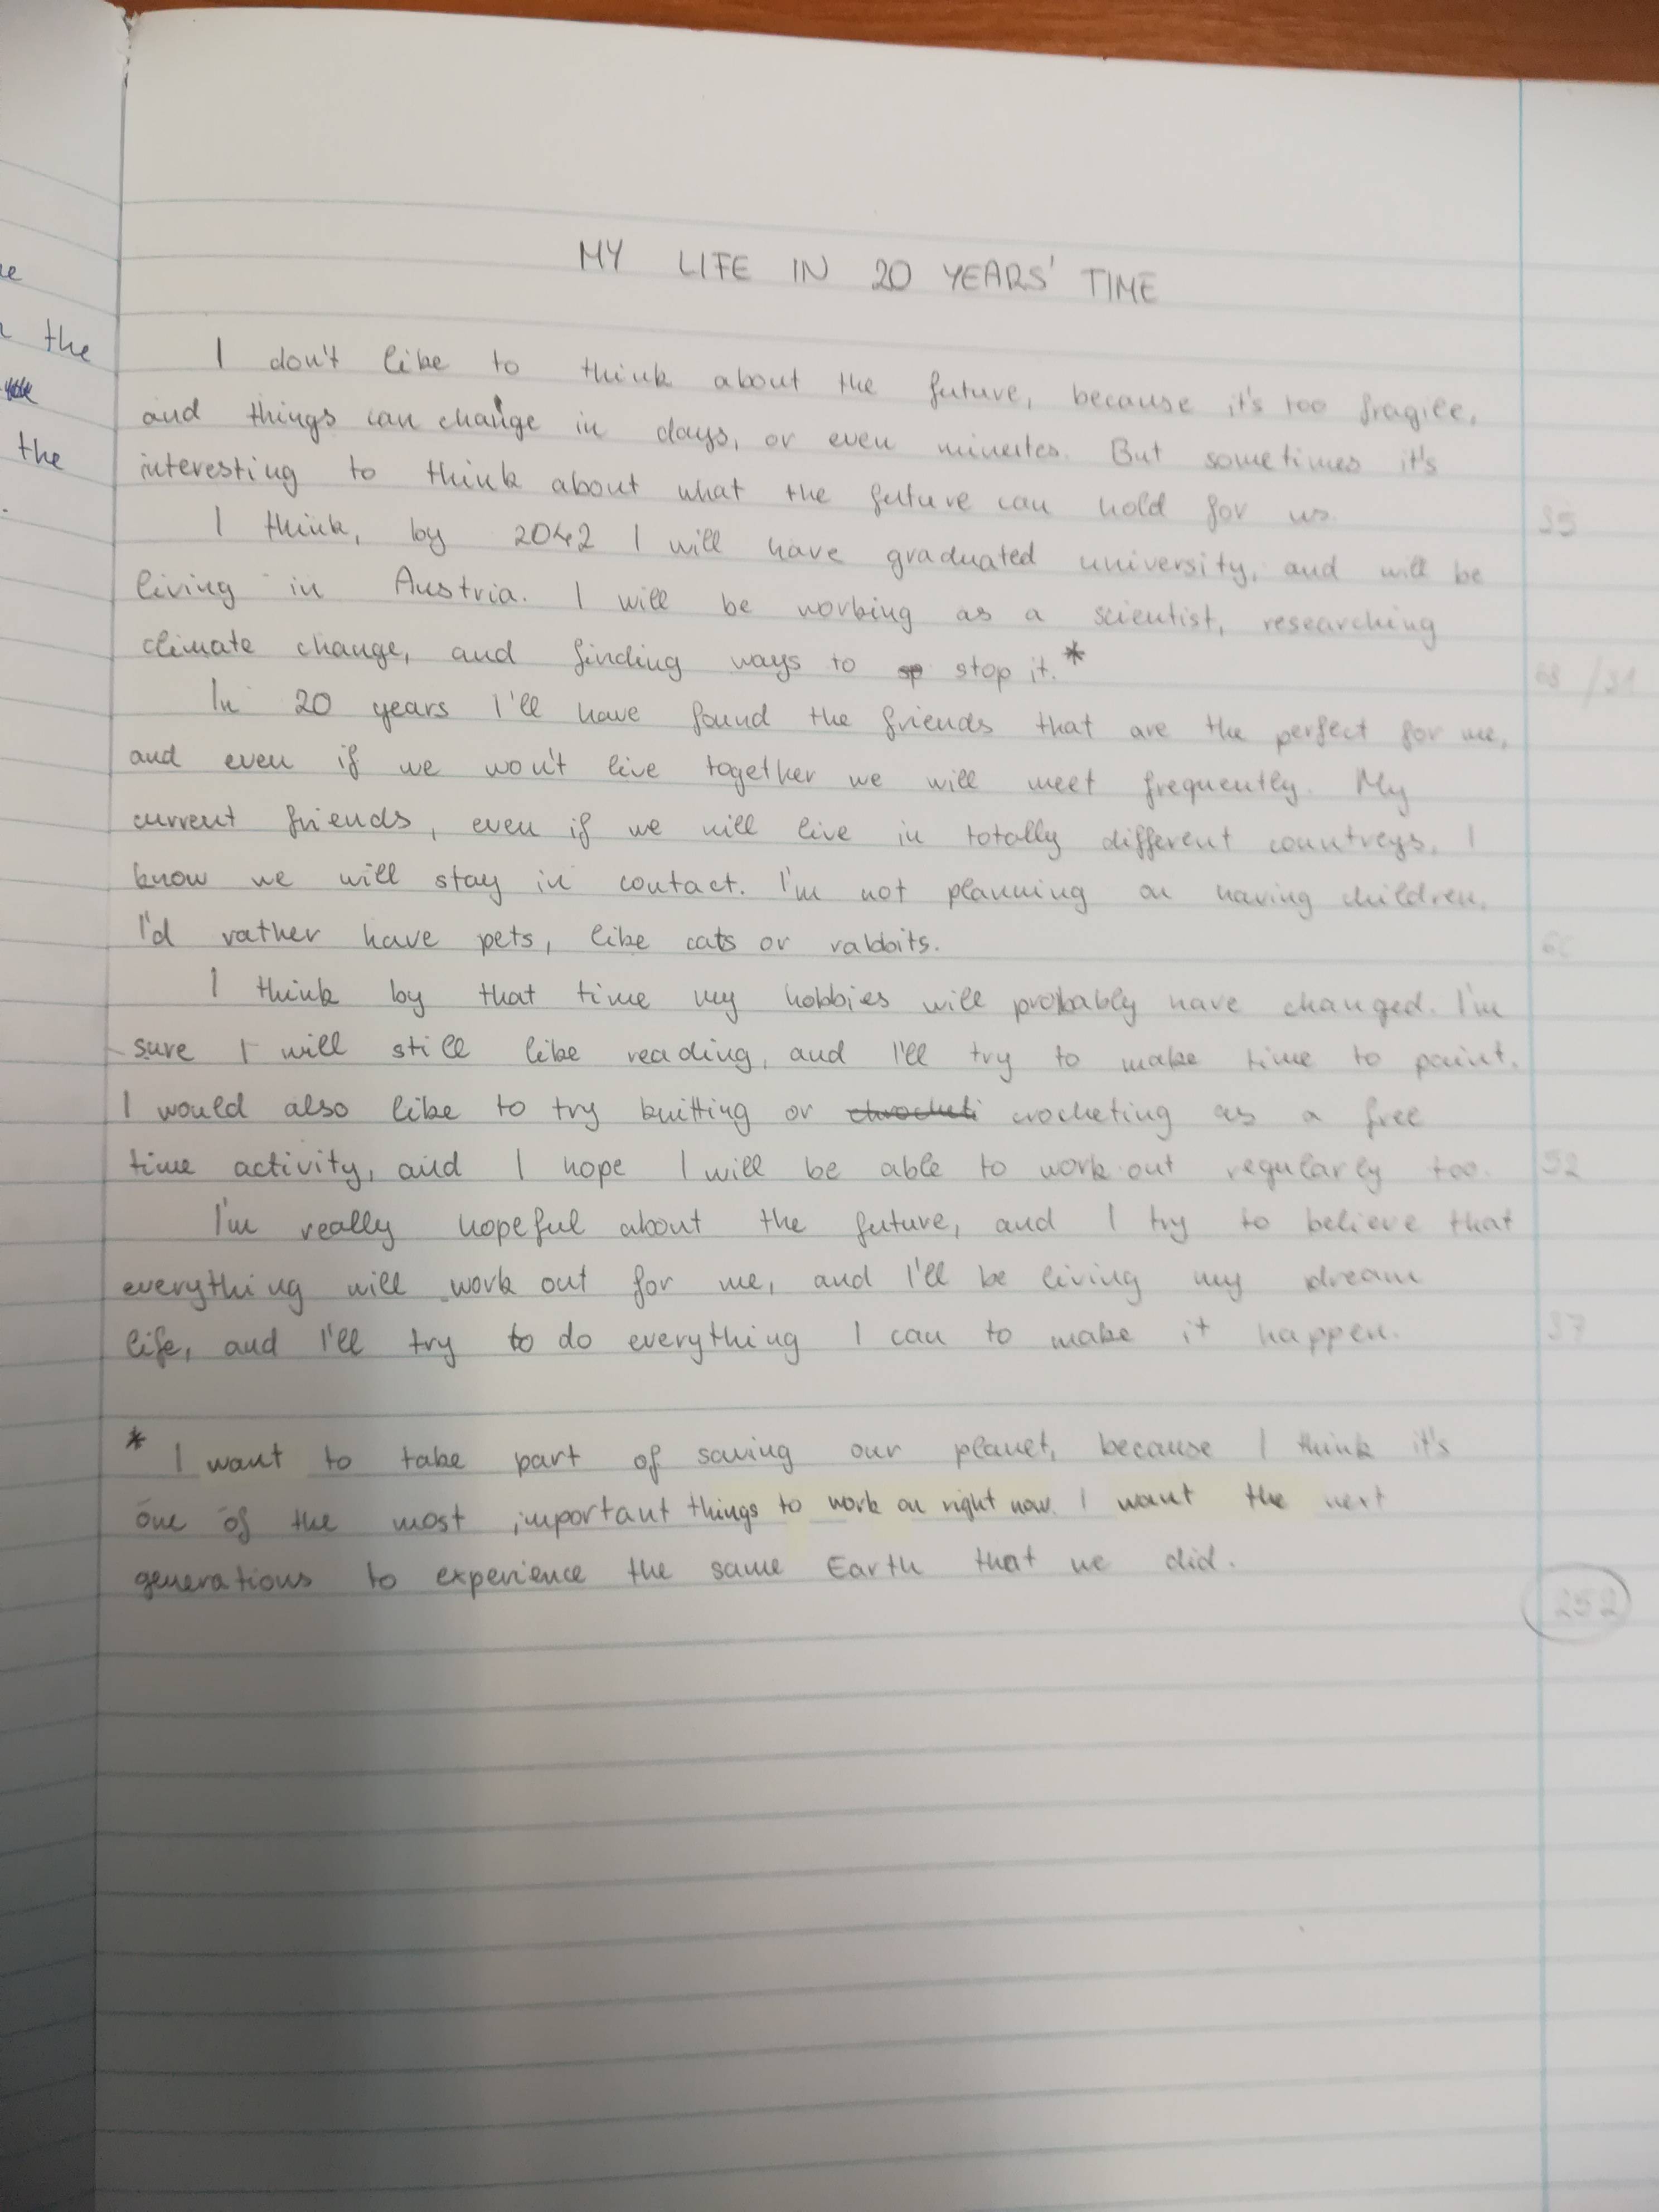 MY LIFE IN 20 YEARS' TIME
I don't like to think about the future, because it's too fragile,
and things can change in days, or even minutes. But sometimes it's
interesting to think about what the future can hold for us.
35
I think, by 2042 I will have graduated university, and will be
living in Austria. I will be working as a scientist, researching
climate change, and finding ways to stop it.*
68 / 31
In 20 years I'll have found the friends that are the perfect for me,
and even if we won't live together we will meet frequently. My
current friends, even if we will live in totally different countreys, I
know we will stay in contact. I'm not planning on having children,
I'd rather have pets, like cats or rabbits.
I think by that time my hobbies will probably have changed. I'm
sure I will still like reading, and I'll try to make time to paint.
I would also like to try knitting or crocheting as a free
time activity, and I hope I will be able to work out regularly too.
52
I'm really hopeful about the future, and I try to believe that
everything will work out for me, and I'll be living my dream
life, and I'll try to do everything I can to make it happen.
37
* I want to take part of saving our planet, because I think it's
one of the most important things to work on right now. I want the next
generations to experience the same Earth that we did.
252
the
the